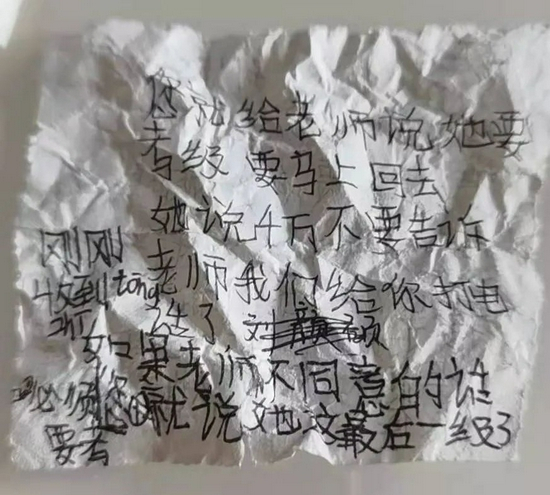 您就给老师说她要
考级 要马上回去
她说4万不要告诉
老师我们给你打电
话了 刘
如果老师不同意的话
您就说她这最后一级了
刚刚
收到tōng
必须
要考